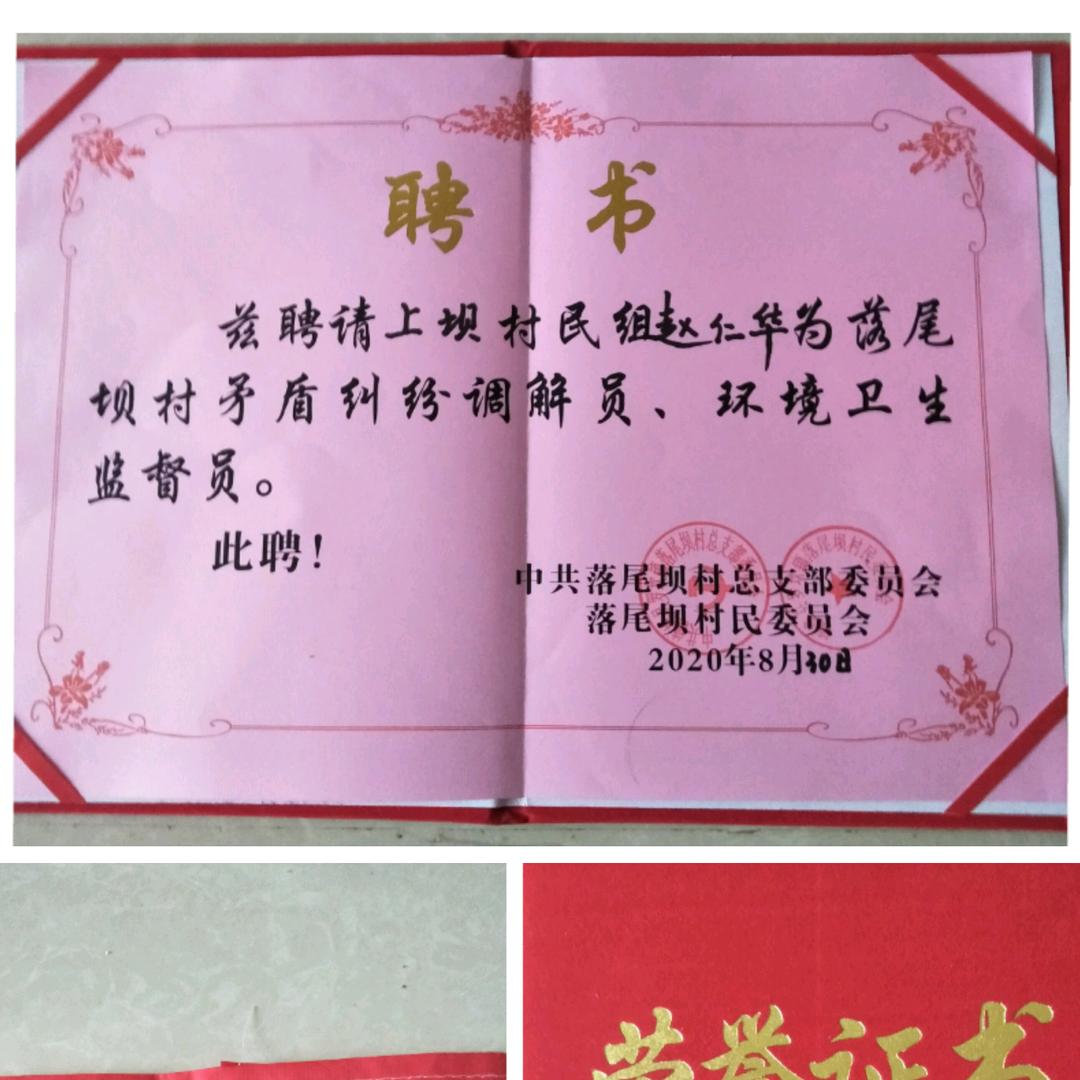 聘 书
兹聘请上坝村民组赵仁华为落尾
坝村矛盾纠纷调解员、环境卫生
监督员。
此聘!
中共落尾坝村总支部委员会
落尾坝村民委员会
2020年8月30日
荣誉证书